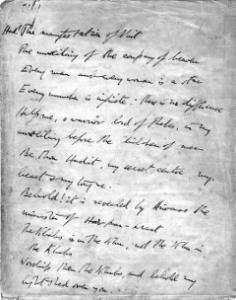 Had! The manifestation of Nuit
The unveiling of the company of heaven
Every man and every woman is a star
Every number is infinite: there is no difference
Help me, o warrior lord of Thebes, in my
unveiling before the Children of men
Be thou Hadit, my secret centre, my
heart & my tongue.
Behold! it is revealed by Aiwass the
minister of Hoor-paar-kraat
The Khabs is in the Khu, not the Khu in
the Khabs
Worship then the Khabs, and behold my
light shed over you.